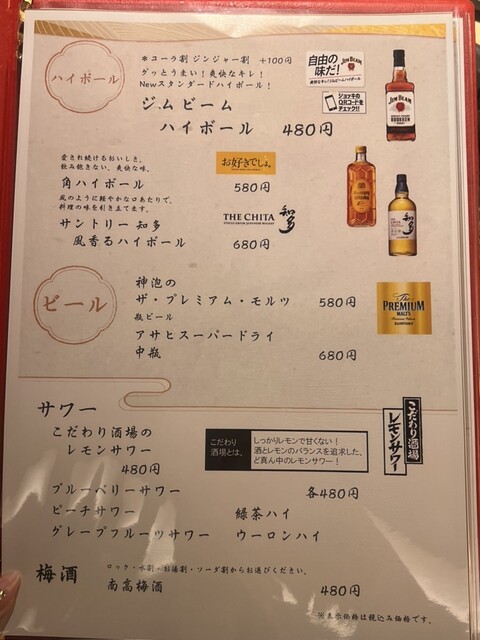 ハイボール
＊コーラ割 ジンジャー割 +100円
グッとうまい！爽快なキレ！
Newスタンダードハイボール！
ジムビーム
ハイボール 480円
自由の
味だ！
JIM BEAM
ジョッキの
QRコードを
チェック!!
JIM BEAM
BOURBON
愛され続けるおいしさ。
飲み飽きない、爽快な味。
角ハイボール 580円
お好きでしょ。
風のように軽やかな口あたりで、
料理の味を引き立てます。
サントリー 知多
風香るハイボール 680円
THE CHITA
知多
知多
ビール
神泡の
ザ・プレミアム・モルツ 580円
瓶ビール
アサヒスーパードライ
中瓶 680円
The
PREMIUM
MALT'S
SUNTORY
サワー
こだわり酒場の
レモンサワー
480円
こだわり
酒場とは、
しっかりレモンで甘くない！
酒とレモンのバランスを追求した、
ど真ん中のレモンサワー！
こだわり酒場
レモンサワー
ブルーベリーサワー 各480円
ピーチサワー 緑茶ハイ
グレープフルーツサワー ウーロンハイ
梅酒
ロック・水割・お湯割・ソーダ割からお選びください。
南高梅酒 480円
※表示価格は税込み価格です。